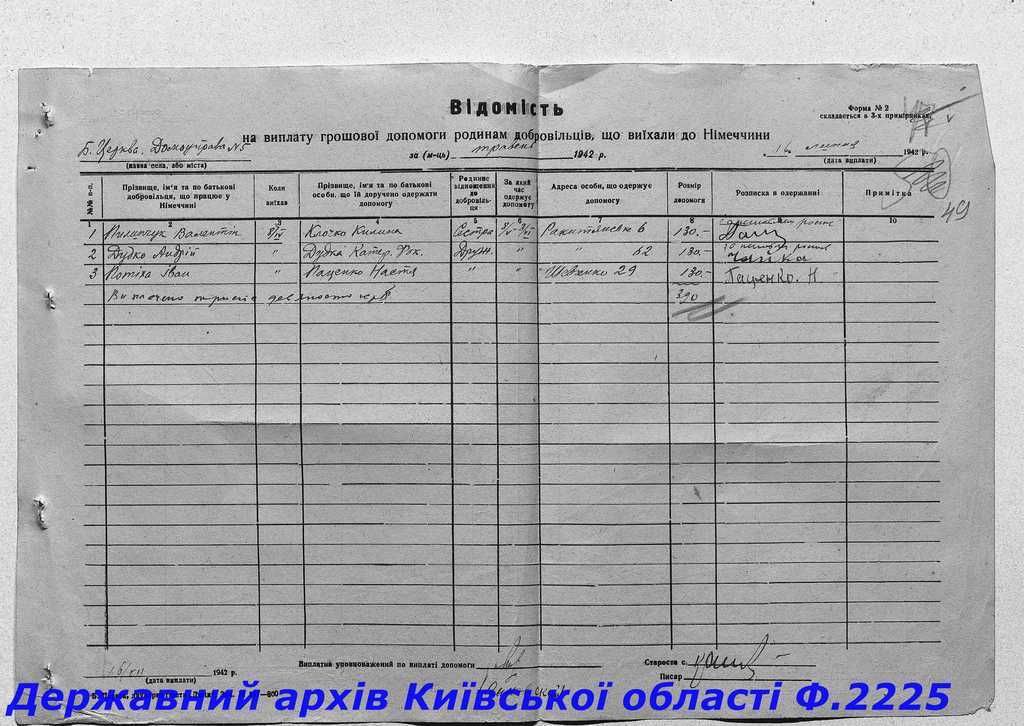 Відомість
Форма № 2
складається в 3-х примірниках.
на виплату грошової допомоги родинам добровільців, що виїхали до Німеччини
Б. Церква. Домоуправа №5
за (м-ць) травень 1942 р.
16 1942 р.
(назва села, або міста)
(дата виплати)
49
№№ п-п.
Прізвище, ім'я та по батькові добровільця, що працює у Німеччині
Коли виїхав
Прізвище, ім'я та по батькові особи, що їй доручено одержати допомогу
Родинне відношення до добровільця
За який час одержує допомогу
Адреса особи, що одержує допомогу
Розмір допомоги
Розписка в одержанні
Примітка
1 2 3 4 5 6 7 8 9 10
1 Пилипчук Валентін Клочко Килина Сестра 6 130.-
2 Дудко Андрій " Друж. " " 52 130.- Чайка
3 Потіха Іван " Паценко Настя " " 29 130.- Паценко. Н
Виплачено триста девяносто крб 390
1942 р.
(дата виплати)
Виплатив уповноважений по виплаті допомоги
Староста с.
Писар
Державний архів Київської області Ф.2225